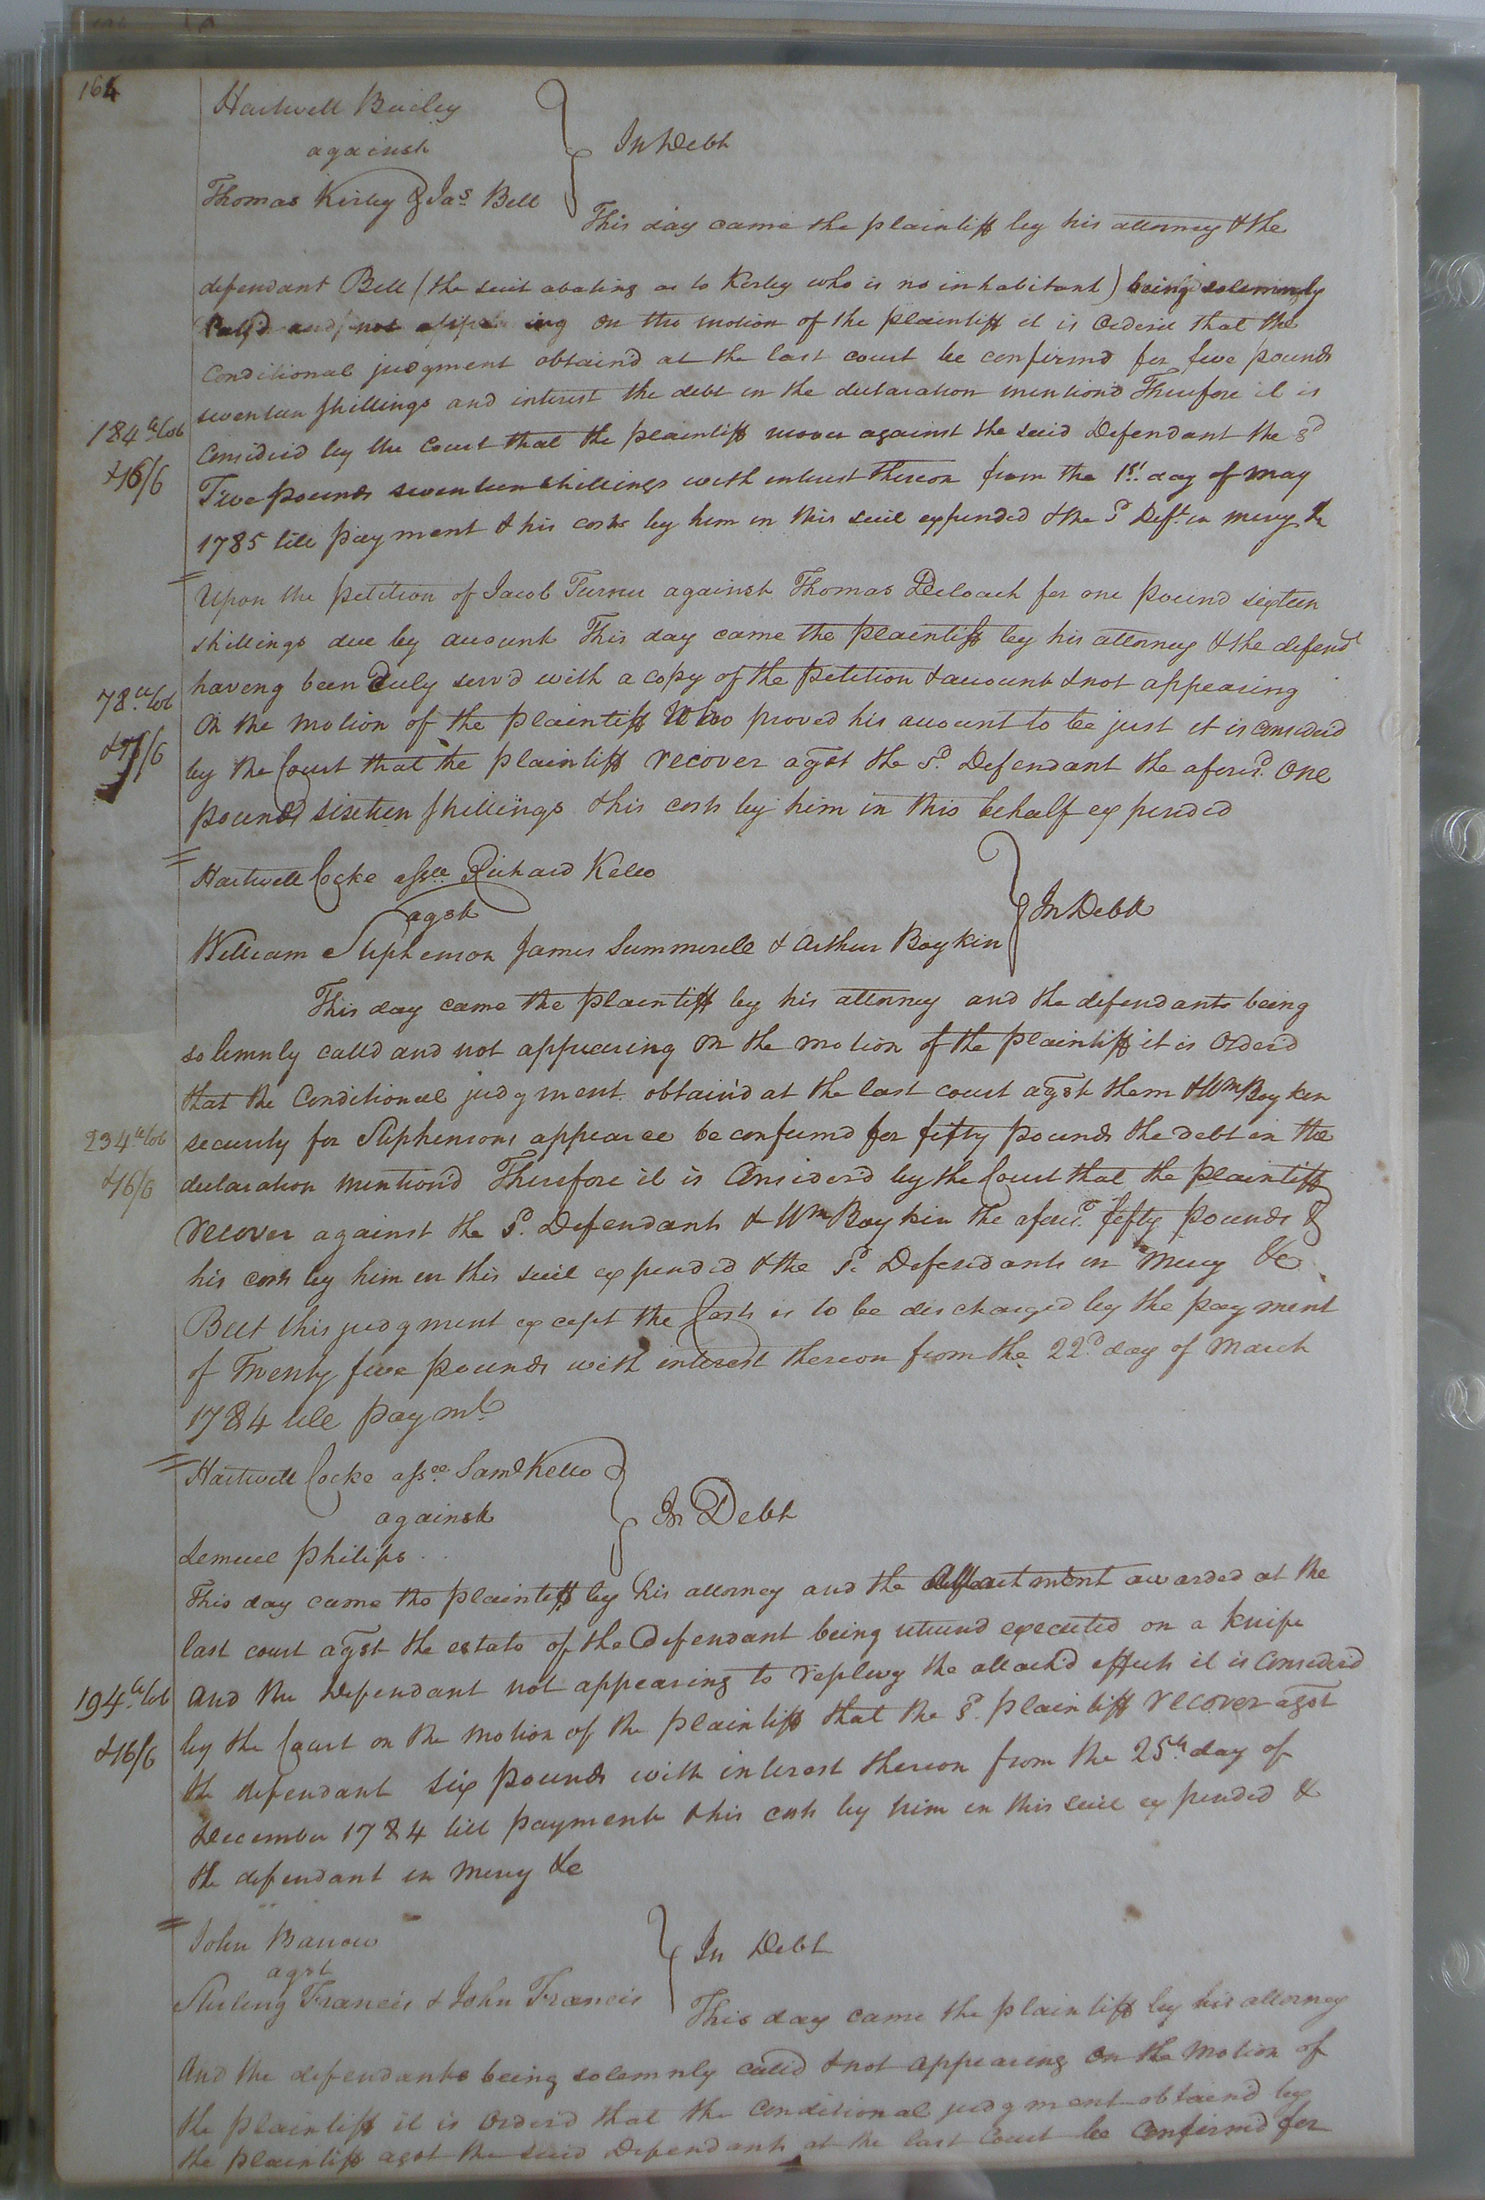 164
Hartwell Bailey
against
Thomas Kirby & Jas Bell
In Debt
This day came the plaintiff by his attorney & the
defendant Bell (the suit abating as to Kirby who is no inhabitant) being solemnly
Call'd and not appearing on the motion of the plaintiff it is Orderd that the
Conditional judgment obtaind at the last court be confirmd for five pounds
seventeen shillings and interest the debt in the declaration mention'd Therefore it is
184 lb Tob
Considerd by the Court that the plaintiff recover against the said Defendant the sd
&16/6
Five pounds seventeen shillings with interest thereon from the 1st day of May
1785 till payment & his costs by him in this suit expended & the sd Deft in mercy &c
Upon the petition of Jacob Turner against Thomas Deloach for one pound sixteen
shillings due by account This day came the plaintiff by his attorney & the defendt
having been Duly serv'd with a copy of the petition & account & not appearing
78 lb Tob
On the motion of the plaintiff Who proved his account to be just it is considerd
&7/6
by the Court that the plaintiff recover agst the sd Defendant the aforesd One
pound sixteen shillings & his costs by him in this behalf expended
Hartwell Cocke assee Richard Kello
agst
William Stephenson James Summerell & Arthur Boykin
In Debt
This day came the plaintiff by his attorney and the defendants being
solemnly calld and not appearing on the motion of the plaintiff it is Orderd
that the Conditional judgment obtain'd at the last court agst them & Wm Boykin
234 lb Tob
security for Stephensons appearce be confirmd for fifty pounds the debt in the
&16/6
declaration mention'd Therefore it is Considerd by the Court that the plaintiff
recover against the sd Defendants & Wm Boykin the aforesd fifty pounds &
his costs by him in this suit expended & the sd Defendants in mercy &c
But this judgment except the Costs is to be discharged by the payment
of Twenty five pounds with interest thereon from the 22d day of March
1784 till paymt
Hartwell Cocke assee Saml Kello
against
Lemuel Philips
In Debt
This day came the plaintiff by his attorney and the Attachment awarded at the
last court agst the estate of the Defendant being returnd executed on a knife
194 lb Tob
And the Defendant not appearing to replevy the attach'd effects it is Considerd
&16/6
by the Court on the motion of the plaintiff that the sd plaintiff recover agst
the defendant six pounds with interest thereon from the 25th day of
December 1784 till payment & his costs by him in this suit expended &
the defendant in mercy &c
John Barrow
agst
Sterling Francis & John Francis
In Debt
This day came the plaintiff by his attorney
And the defendants being solemnly calld & not appearing on the motion of
the plaintiff it is Orderd that the Conditional judgment obtain'd by
the plaintiff agst the said Defendants at the last Court be Confirmd for